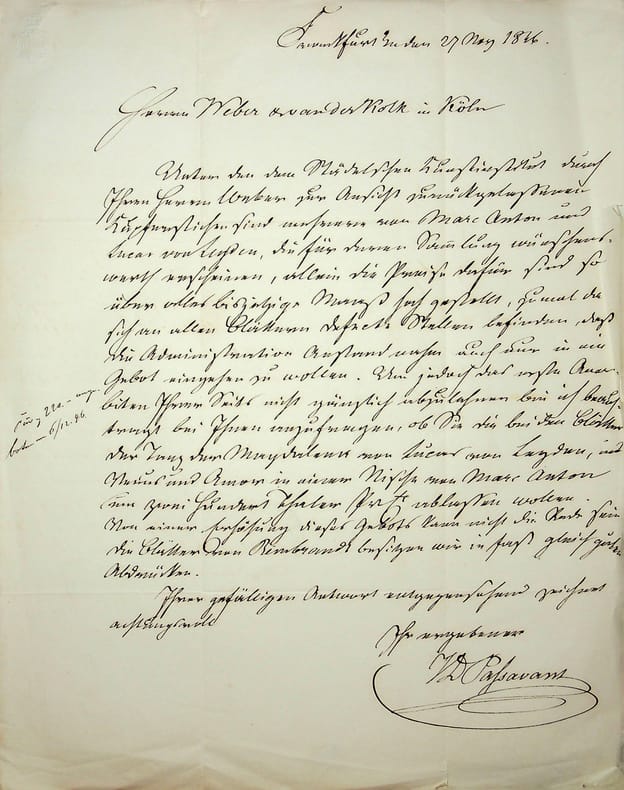 Frankfurt M den 27 Nov 1846.
Herrn Weber & van der Kolk in Köln
Unter den dem Städelschen Kunstinstitut durch
Ihren Herrn Weber zur Ansicht zurückgelassenen
Kupferstichen sind mehrere von Marc Anton und
Lucas von Leyden, die für deren Sammlung wünschens-
werth erscheinen, allein die Preise dafür sind so
über alles bis jetzige Maaß hoch gestellt, zumal da
sich an allen Blättern defecte Stellen befinden, daß
die Administration Anstand nahm auch nur in ein
Gebot eingehen zu wollen. Um jedoch das erste Aner-
bieten Ihrer Seits nicht gänzlich abzulehnen bin ich beauf-
tragt bei Ihnen anzufragen, ob Sie die beiden Blätter
der Tanz der Magdalena von Lucas von Leyden, und
Venus und Amor in einer Nische von Marc Anton
um zwei hundert Thaler Pr. ablassen wollen.
Von einer Erhöhung dieses Gebots kann nicht die Rede sein
die Blätter von Rembrandt besitzen wir in fast gleich guten
Abdrücken.
Ihrer gefälligen Antwort entgegensehend zeichnet
achtungsvoll
Ihr ergebener
JD Passavant
220.-
boten - 6/12.46.